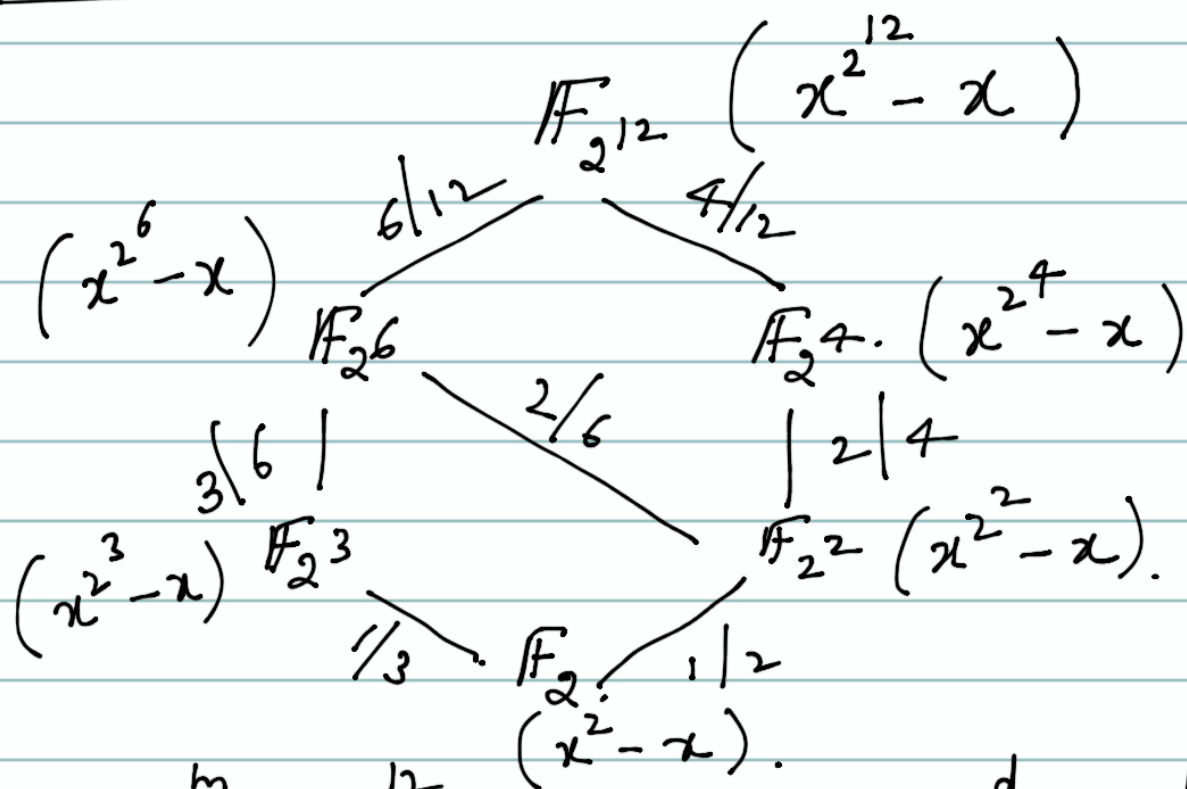 𝔽_{2^{12}} (x^{2^{12}} - x)
6|12 4/12
(x^{2^6} - x) 𝔽_{2^6} 𝔽_{2^4}. (x^{2^4} - x)
3|6 2/6 2|4
(x^{2^3} - x) 𝔽_{2^3} 𝔽_{2^2} (x^{2^2} - x).
1/3 𝔽_2. 1|2
(x^2 - x).